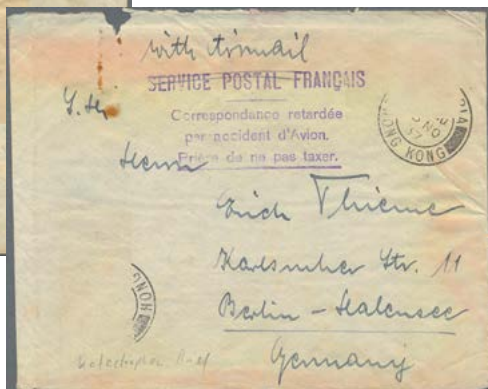 with Airmail
SERVICE POSTAL FRANÇAIS
Correspondance retardée
par accident d'Avion.
Prière de ne pas taxer.
HONG KONG
Herrn
Erich Thieme
Karlsruher Str. 11
Berlin - Halensee
Germany
HONG